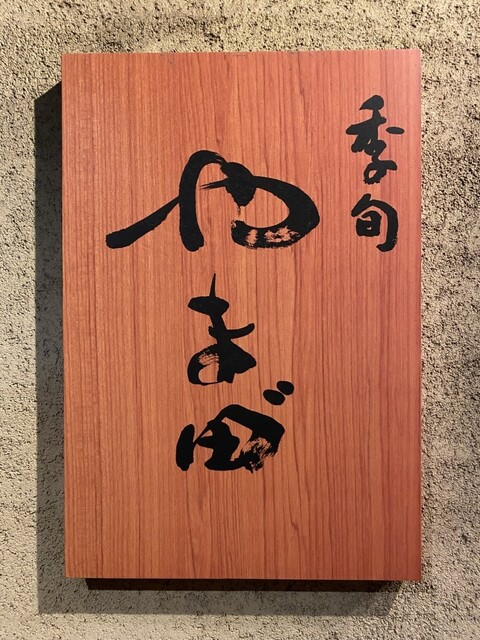 季旬
やま田゛